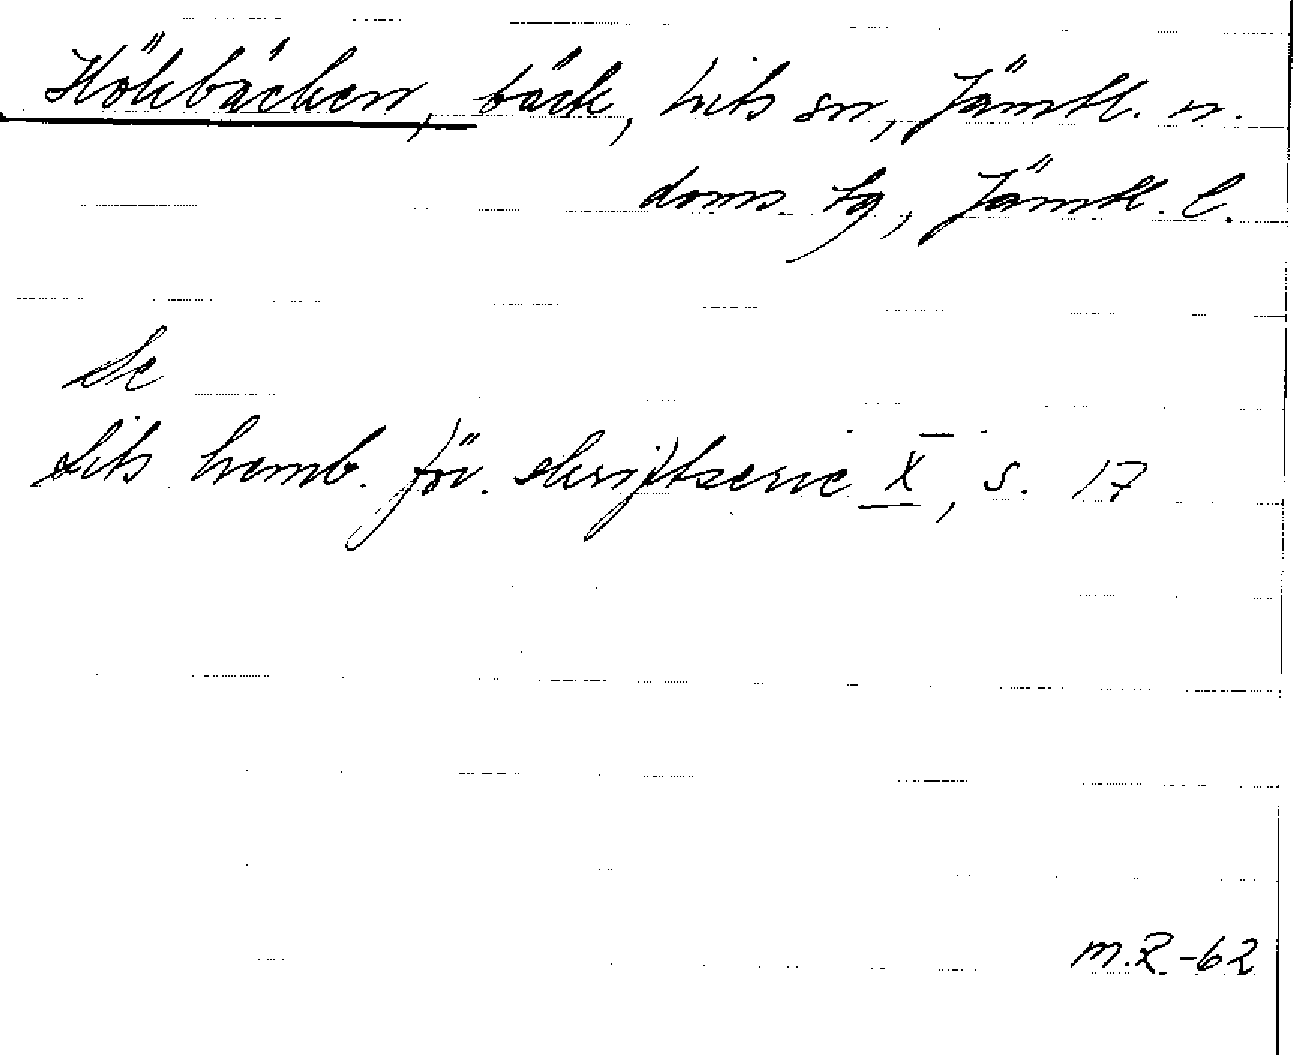 Hökbäcken, bäck, Lits sn, Jämtl. n.
doms. sg, Jämtl. l.
Se
Lits hemb. för. skriftserie X, s. 17
M.R-62